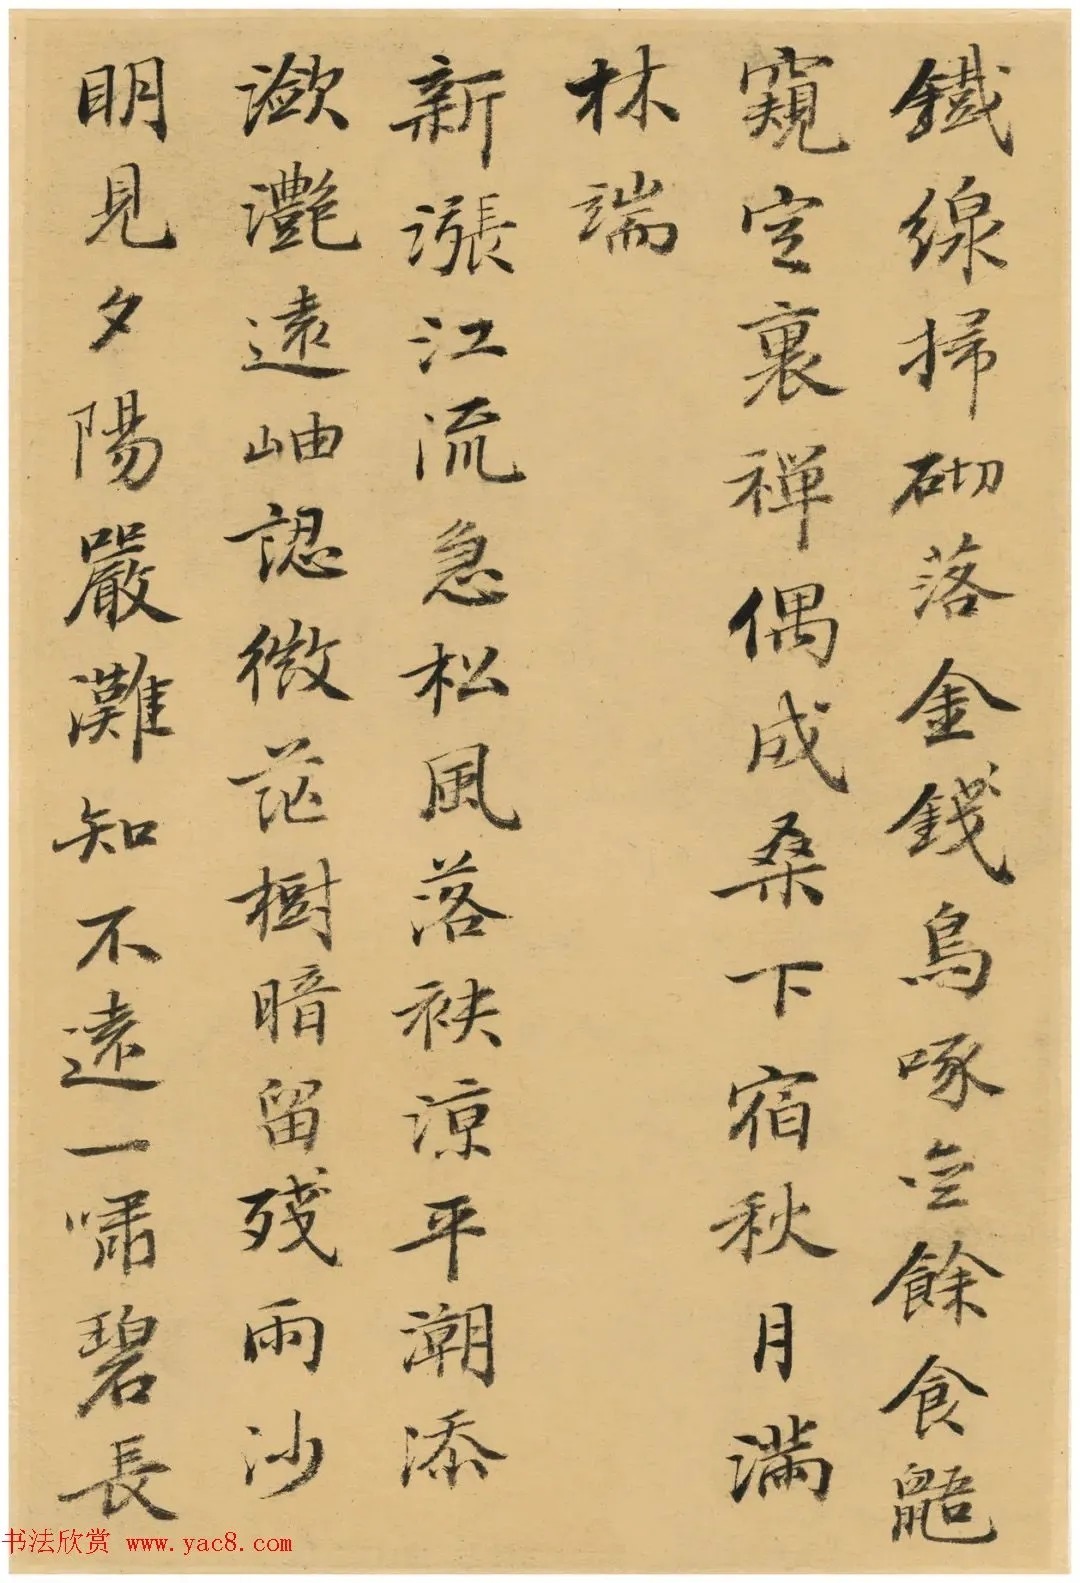 鐵線掃砌落金錢烏啄空餘食鼯
窺定裏禪偶成桑下宿秋月滿
林端
新漲江流急松風落袂涼平潮添
潋灧遠岫認微茫樹暗留殘雨沙
明見夕陽嚴灘知不遠一嘯碧長
书法欣赏 www.yac8.com